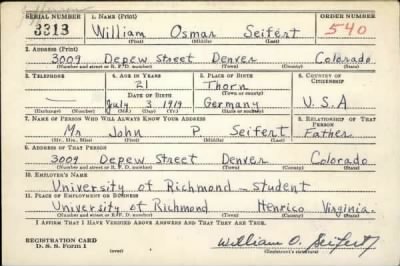 SERIAL NUMBER 1. NAME (Print) ORDER NUMBER
3313 William Osmar Seifert 540
(First) (Middle) (Last)
2. ADDRESS (Print)
3009 Depew Street Denver Colorado
(Number and street or R. F. D. number) (Town) (County) (State)
3. TELEPHONE 4. AGE IN YEARS 5. PLACE OF BIRTH 6. COUNTRY OF CITIZENSHIP
— 21 Thorn
DATE OF BIRTH (Town or county)
July 3 1919 Germany U.S.A
(Exchange) (Number) (Mo.) (Day) (Yr.) (State or country)
7. NAME OF PERSON WHO WILL ALWAYS KNOW YOUR ADDRESS 8. RELATIONSHIP OF THAT PERSON
Mr John P. Seifert Father
(Mr., Mrs., Miss) (First) (Middle) (Last)
9. ADDRESS OF THAT PERSON
3009 Depew Street Denver Colorado
(Number and street or R. F. D. number) (Town) (County) (State)
10. EMPLOYER'S NAME
University of Richmond - student
11. PLACE OF EMPLOYMENT OR BUSINESS
University of Richmond Henrico Virginia.
(Number and street or R. F. D. number) (Town) (County) (State)
I AFFIRM THAT I HAVE VERIFIED ABOVE ANSWERS AND THAT THEY ARE TRUE.
REGISTRATION CARD
D. S. S. Form 1 (over) William O. Seifert
(Registrant's signature)